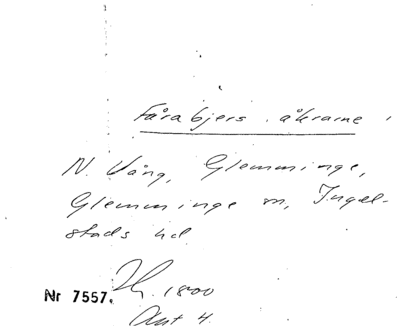 Fårabjers åkrarne,
N. Vång, Glemminge,
Glemminge sn, Ingel-
stads hd
1800
Nr 7557.
Akt 4.